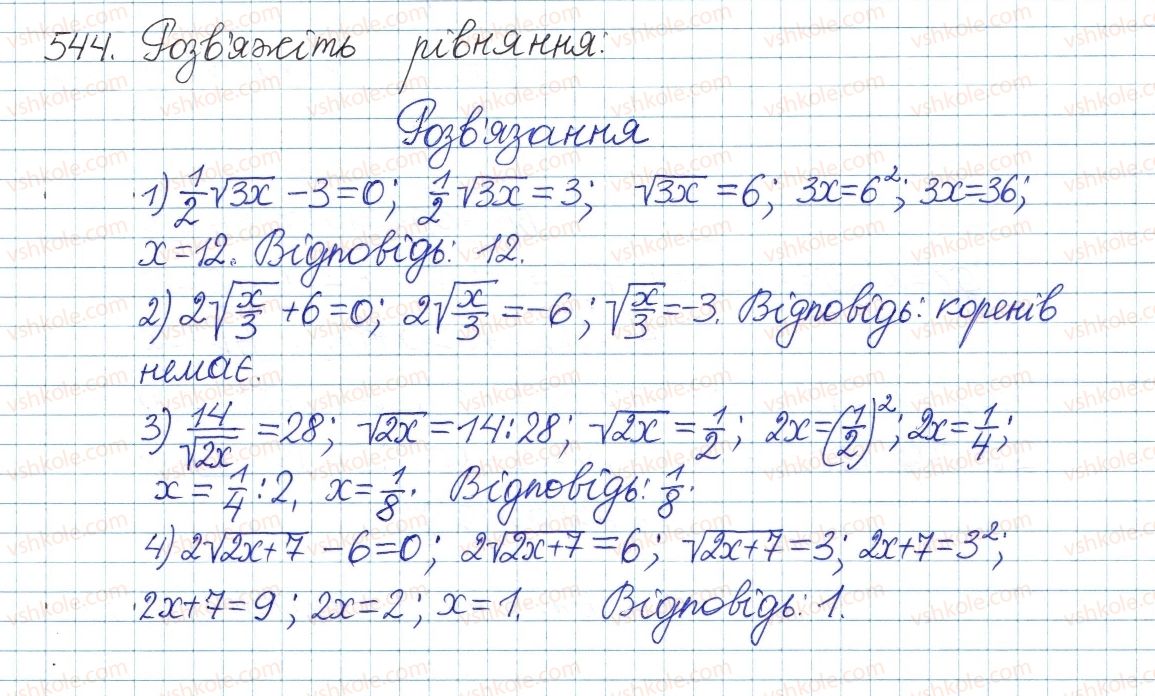 544. Розв'яжіть рівняння:
Розв'язання
1) 1/2 √3x − 3 = 0; 1/2 √3x = 3; √3x = 6; 3x = 6²; 3x = 36;
x = 12. Відповідь: 12.
2) 2√(x/3) + 6 = 0; 2√(x/3) = −6; √(x/3) = −3. Відповідь: коренів
немає.
3) 14/√2x = 28; √2x = 14:28; √2x = 1/2; 2x = (1/2)²; 2x = 1/4;
x = 1/4 : 2, x = 1/8. Відповідь: 1/8.
4) 2√(2x+7) − 6 = 0; 2√(2x+7) = 6; √(2x+7) = 3; 2x+7 = 3²;
2x+7 = 9; 2x = 2; x = 1. Відповідь: 1.